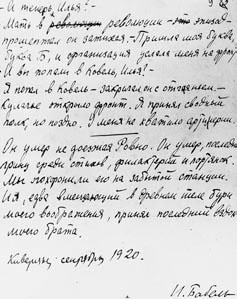 - И теперь, Илья? -
Мать в революции - эпизод -
прошептал он затихая. - Пришла моя буква,
буква Б, и организация услала меня на фронт
И вы попали в Ковель, Илья? -
Я попал в Ковель - закричал он с отчаянием. -
Кулачье открыло фронт. Я принял сводный
полк, но поздно. У меня не хватило артиллерии.
Он умер не доезжая Ровно. Он умер, последний
принц среди стихов, филактерий и портянок.
Мы похоронили его на забытой станции.
И я, едва вмещающий в древнем теле бури
моего воображения, принял последний вздох
моего брата.
сентябрь 1920.
И. Бабель